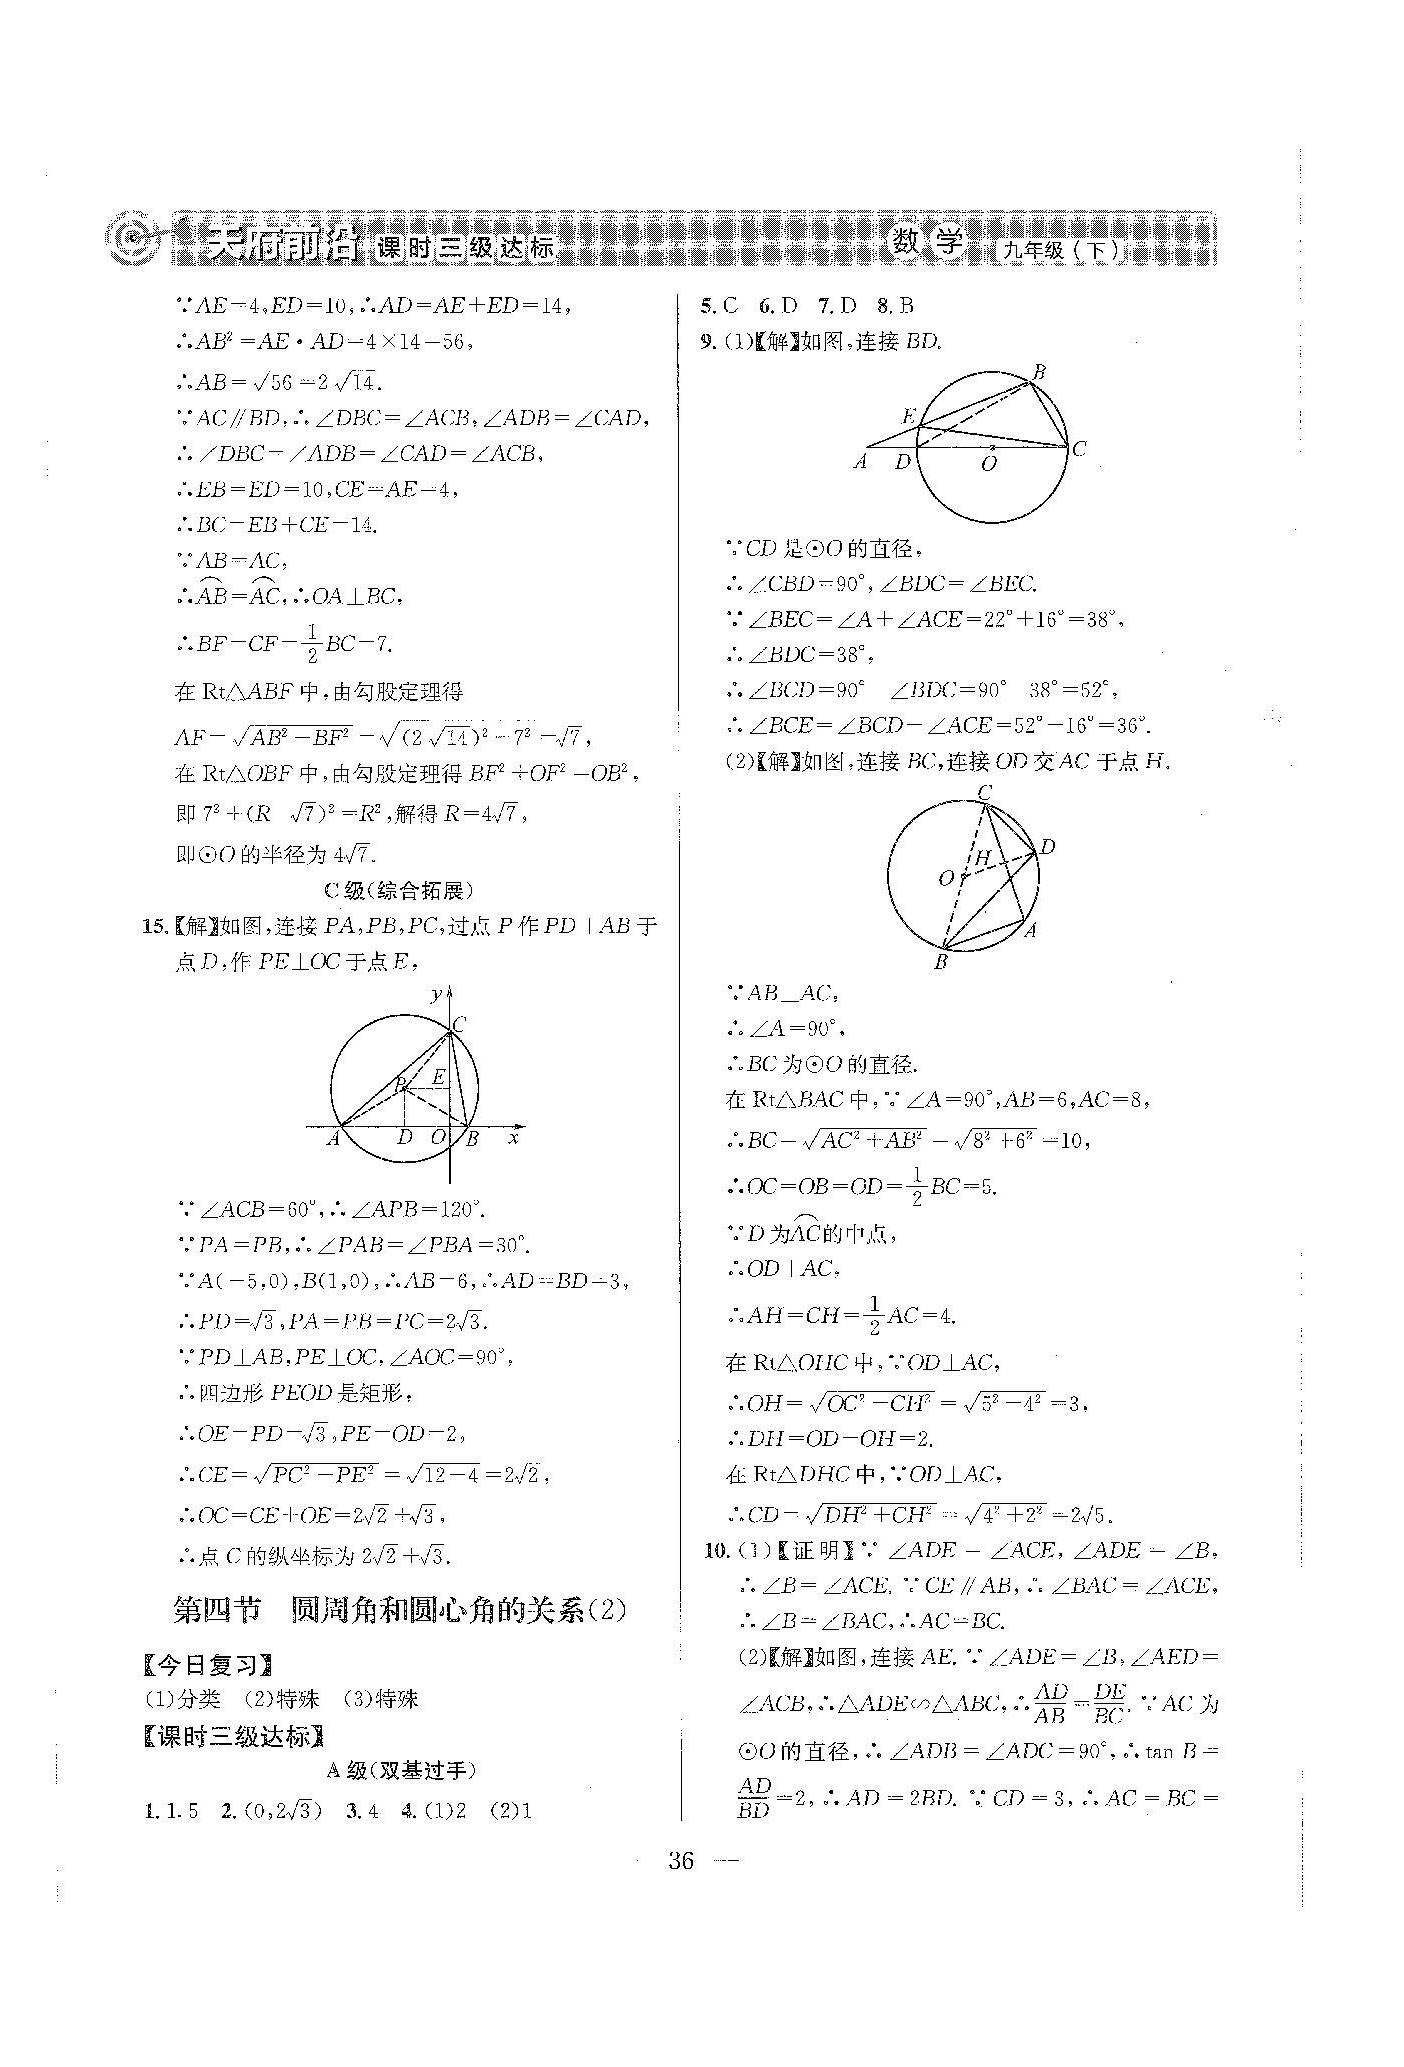 天府前沿 课时三级达标 数学 九年级(下)
∵AE=4,ED=10,∴AD=AE+ED=14,
∴AB²=AE·AD=4×14=56,
∴AB=√56=2√14.
∵AC∥BD,∴∠DBC=∠ACB,∠ADB=∠CAD,
∴∠DBC=∠ADB=∠CAD=∠ACB,
∴EB=ED=10,CE=AE=4,
∴BC=EB+CE=14.
∵AB=AC,
∴A͡B=A͡C,∴OA⊥BC,
∴BF=CF=1/2BC=7.
在Rt△ABF中,由勾股定理得
AF=√(AB²-BF²)=√((2√14)²-7²)=√7,
在Rt△OBF中,由勾股定理得BF²+OF²=OB²,
即7²+(R-√7)²=R²,解得R=4√7,
即⊙O的半径为4√7.
C级(综合拓展)
15.【解】如图,连接PA,PB,PC,过点P作PD⊥AB于
点D,作PE⊥OC于点E,
y
C
P E
A D O B x
∵∠ACB=60°,∴∠APB=120°.
∵PA=PB,∴∠PAB=∠PBA=30°.
∵A(-5,0),B(1,0),∴AB=6,∴AD=BD=3,
∴PD=√3,PA=PB=PC=2√3.
∵PD⊥AB,PE⊥OC,∠AOC=90°,
∴四边形PEOD是矩形,
∴OE=PD=√3,PE=OD=2,
∴CE=√(PC²-PE²)=√(12-4)=2√2,
∴OC=CE+OE=2√2+√3,
∴点C的纵坐标为2√2+√3.
第四节 圆周角和圆心角的关系(2)
【今日复习】
(1)分类 (2)特殊 (3)特殊
【课时三级达标】
A级(双基过手)
1.1.5 2.(0,2√3) 3.4 4.(1)2 (2)1
5.C 6.D 7.D 8.B
9.(1)【解】如图,连接BD.
B
E
A D O C
∵CD是⊙O的直径,
∴∠CBD=90°,∠BDC=∠BEC.
∵∠BEC=∠A+∠ACE=22°+16°=38°,
∴∠BDC=38°,
∴∠BCD=90°-∠BDC=90°-38°=52°,
∴∠BCE=∠BCD-∠ACE=52°-16°=36°.
(2)【解】如图,连接BC,连接OD交AC于点H.
C
H D
O
A
B
∵AB⊥AC,
∴∠A=90°,
∴BC为⊙O的直径.
在Rt△BAC中,∵∠A=90°,AB=6,AC=8,
∴BC=√(AC²+AB²)=√(8²+6²)=10,
∴OC=OB=OD=1/2BC=5.
∵D为A͡C的中点,
∴OD⊥AC,
∴AH=CH=1/2AC=4.
在Rt△OHC中,∵OD⊥AC,
∴OH=√(OC²-CH²)=√(5²-4²)=3,
∴DH=OD-OH=2.
在Rt△DHC中,∵OD⊥AC,
∴CD=√(DH²+CH²)=√(4²+2²)=2√5.
10.(1)【证明】∵∠ADE=∠ACE,∠ADE=∠B,
∴∠B=∠ACE.∵CE∥AB,∴∠BAC=∠ACE,
∴∠B=∠BAC,∴AC=BC.
(2)【解】如图,连接AE.∵∠ADE=∠B,∠AED=
∠ACB,∴△ADE∽△ABC,∴AD/AB=DE/BC.∵AC为
⊙O的直径,∴∠ADB=∠ADC=90°,∴tan B=
AD/BD=2,∴AD=2BD.∵CD=3,∴AC=BC=
36 —